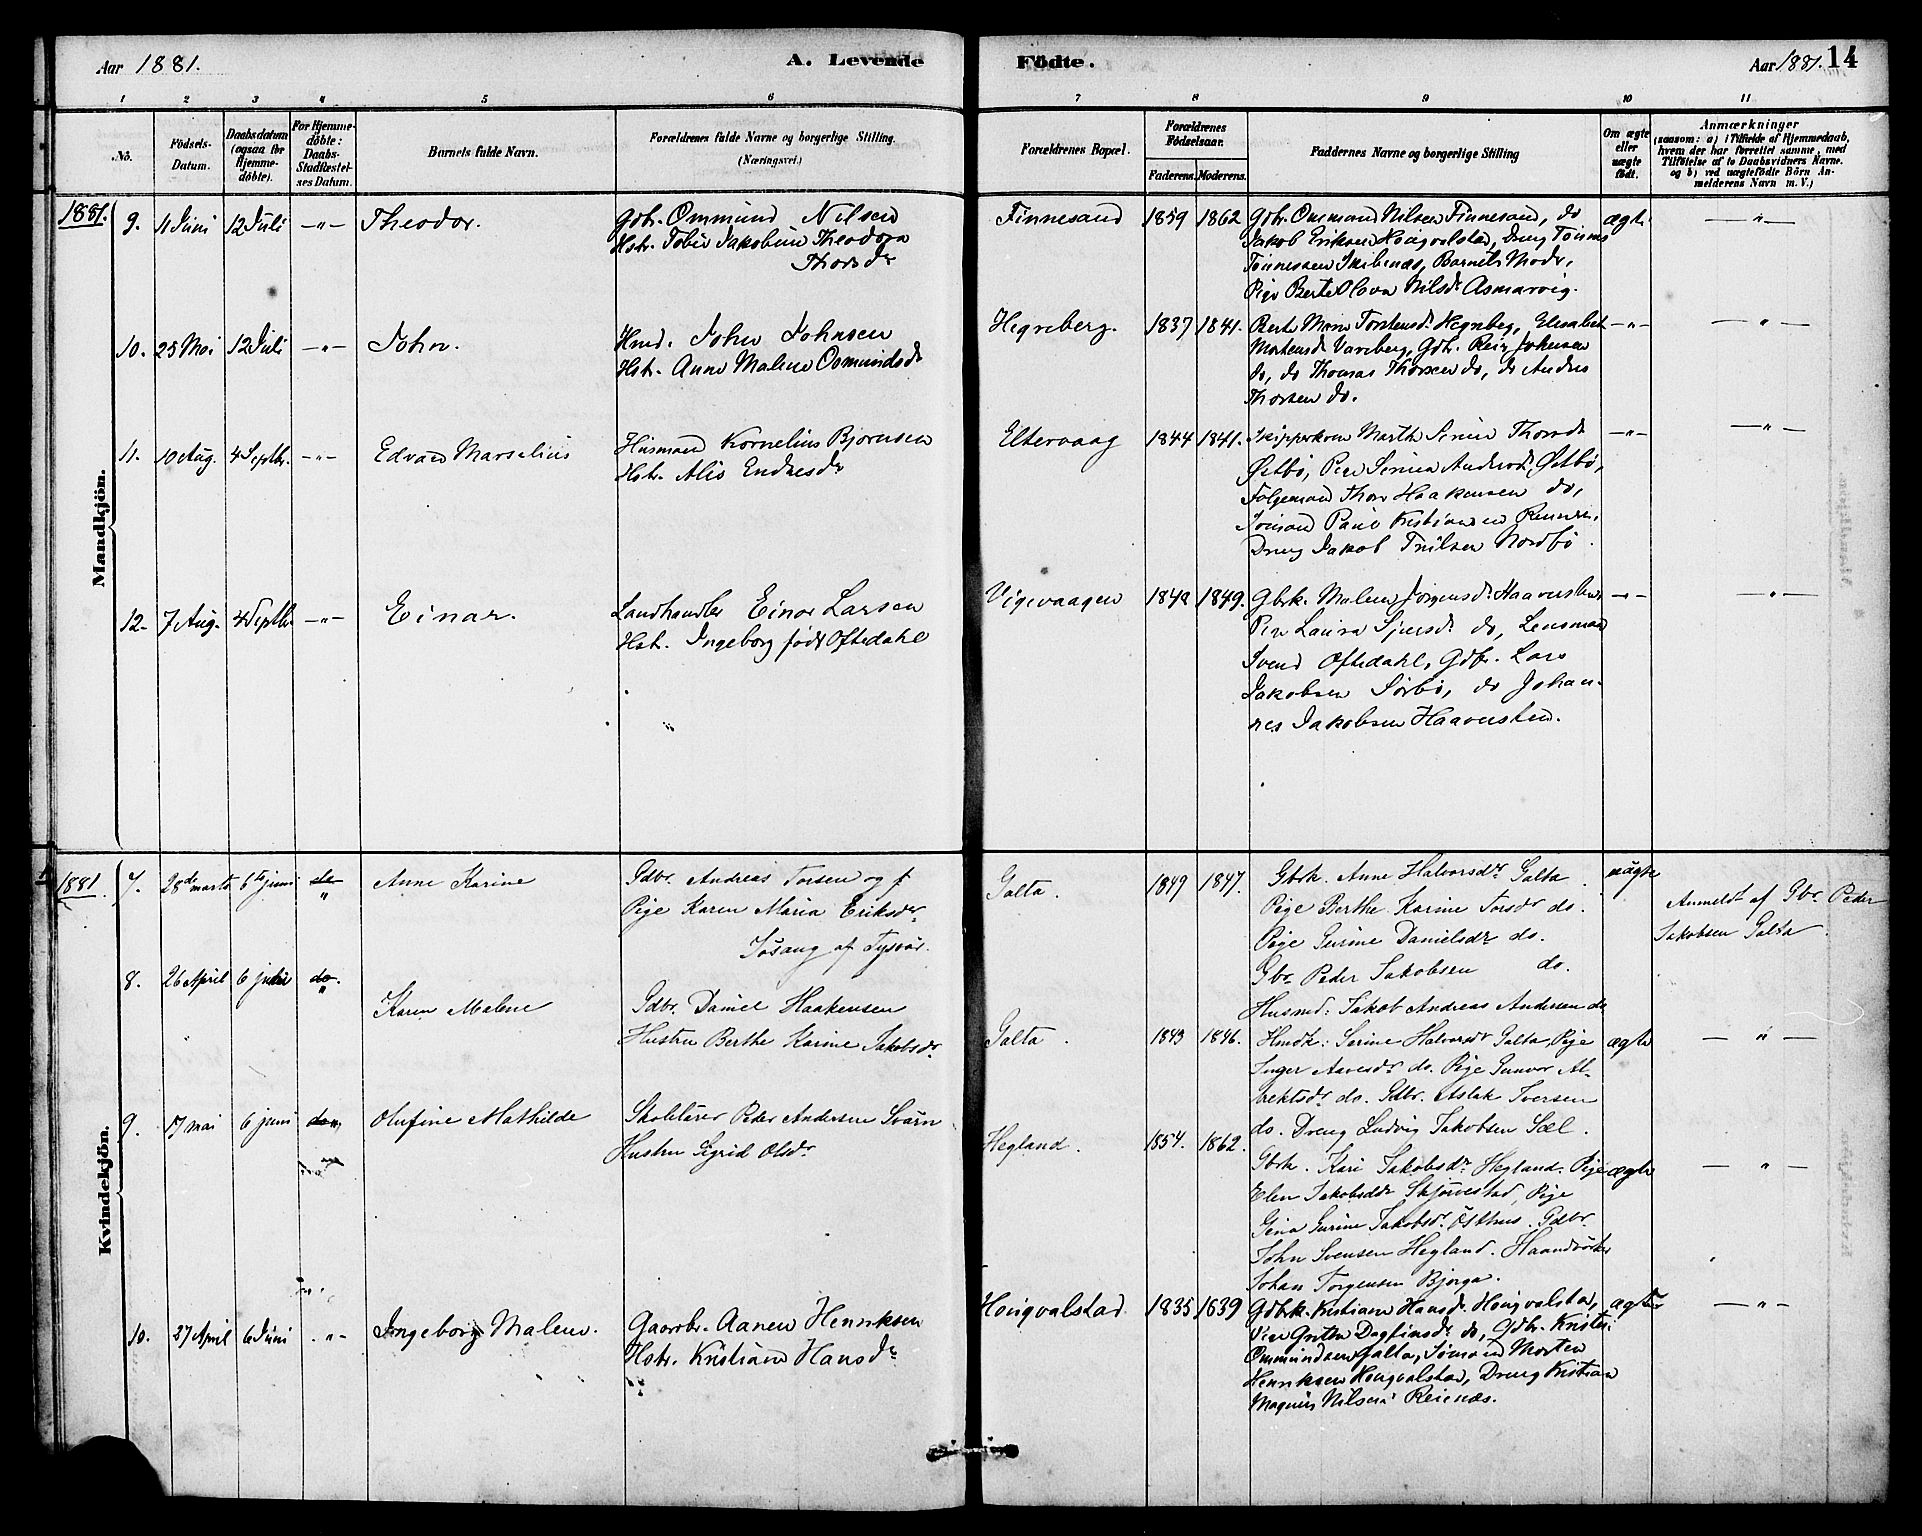 Aar 1881.
A. Levende
Födte.
Aar 1881. 14
1 2 3 4 5 6 7 8 9 10 11
No.
Födsels-Datum.
Daabsdatum (ogsaa for Hjemme-döbte).
For Hjemme-döbte: Daabs-Stadfæstel-ses Datum.
Barnets fulde Navn.
Forældrenes fulde Navne og borgerlige Stilling. (Næringsvei.)
Forældrenes Bopæl.
Forældrenes Födselsaar.
Faderens. Moderens.
Faddernes Navne og borgerlige Stilling
Om ægte eller uægte födt.
Anmærkninger
(saasom: a) i Tilfælde af Hjemmedaab, hvem der har forrettet samme, med Tilföielse af to Daabsvidners Navne. og b) ved uægtefödte Börn An-melderens Navn m. V.)
Mandkjön.
1881. 9. 11 Juni 12 Juli —"— Theodor.
Gdbr. Ommund Nilsen
Hstr. Tobie Jakobine Theodora
Thorsdr
Finnesand 1859 1862
Gdbr. Ommund Nilsen Finnesand, do
Jakob Eriksen Hoigvalstad, Dreng Tönnes
Tönnessen Skibenæs, Barnets Moder,
Pige Berte Olava Nilsdr Asmarvig.
ægte —"—
10. 25 Mai 12 Juli —"— John.
Hmd. John Johnsen
Hstr. Anne Malene Osmundsdr
Hegreberg. 1837 1841.
Berte Marie Torstensdr Hegreberg, Elisabet
Mortensdr Vareberg, Gdbr. Reier Johnsen
do, do Thomas Thorsen do, do Andreas
Thorsen do.
—"— —"—
11. 10 Aug. 4 Septbr. —"— Edvard Marselius
Husmand Kornelius Bjornsen
Hstr. Alis Endresdr
Eltervaag 1844 1841.
Skipperkone Marthe Serine Thorsdr
Østbö, Pige Serine Andersdr Østbö,
Folgemand Thor Haakensen do,
Sömand Paul Kristiansen Rennar.
Dreng Jakob Nilsen Nordbö.
—"— —"—
12. 7 Aug. 4 Septbr —"— Einar.
Landhandler Einar Larsen
Hstr. Ingeborg föd Oftedahl
Vigevaagen 1842 1849.
Gbrk. Malene Jörgensdr Haavarstein
Pige Laura Sjursdr do, Lensmand
Svend Oftedahl, Gdbr. Lars
Jakobsen Sörbö, do Johan-
nes Jakobsen Haavarstein.
—"— —"—
Kvindekjön.
1881. 7. 28de marts 6te juni do " Anne Karine
Gdbr. Andreas Torsen og f
Pige Karen Maria Eriksdr.
Jösang af Tysvär.
Galta. 1849 1847.
Gbrk. Anne Halvorsdr Galta.
Pige Berthe Karine Torsdr do.
Pige Surine Danielsdr do.
Gbr Peder Jakobsen do.
Husmd: Jakob Andreas Andersen do
uägte
Anmeldt af Gbr. Peder
Jakobsen Galta.
8. 26 April 6 juni do. " Karen Malene
Gdbr. Daniel Haakensen
Hustru Berthe Karine Jakobsdr.
Galta. 1843 1846.
Hmdk: Serine Halvorsdr Galta, Pige
Inger Aavesdr do. Pige Gunvor Al-
bektsdr do. Gdbr. Aslak Iversen
do. Dreng Ludvig Jakobsen Sæl.
ægte — " —
9. 17 mai 6 juni do " Olufine Mathilde
Skolelärer Peder Andersen Svärn
Hustru Sigrid Olsdr
Hegland. 1854. 1862.
Gbrk. Kari Jakobsdr Hegland. Pige
Elen Jakobsdr Skjörvestad, Pige
Gina Surine Jakobsdr Østhus. Gdbr.
John Svensen Hegland. Haandvörker
Johan Torgensen Bjerga.
ægte — " —
10. 27 April 6 Juni . "— Ingeborg Malene.
Gaardbr. Aanen Henriksen
Hstr. Kristiane Hansdr
Hoigvalstad. 1835 1839
Gdbk. Kristiane Hansdr. Hoigvalstad,
Pige Grethe Dagfinsdr do, Gdbr. Kristen
Ommundsen Galta, Sömand Morten
Henriksen Hoigvalstad, Dreng Kristian
Magnus Nilsen Reienæs.
ægte —"—